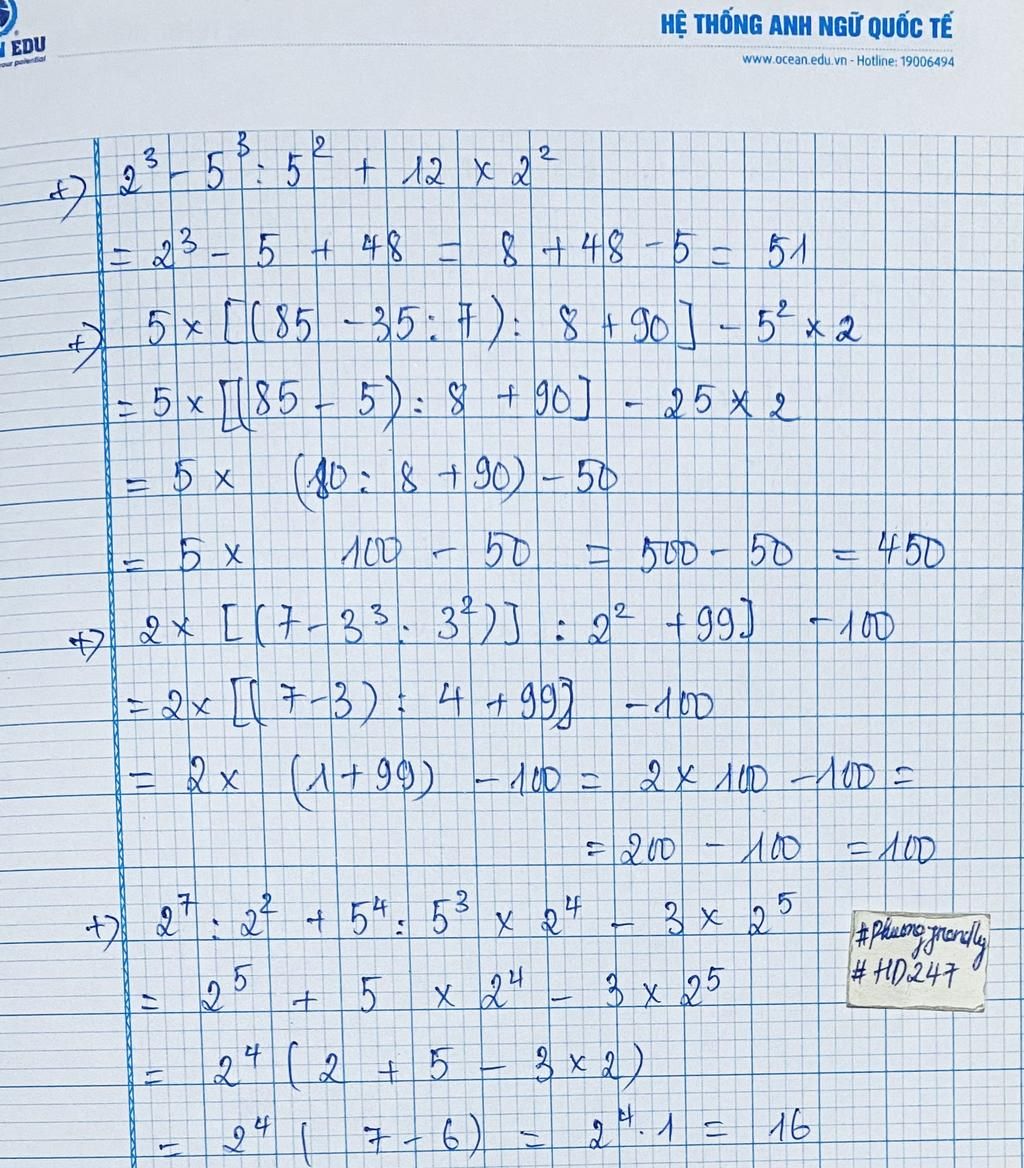 N EDU
your potential
HỆ THỐNG ANH NGỮ QUỐC TẾ
www.ocean.edu.vn - Hotline: 19006494
+) 2³ - 5³ : 5² + 12 × 2²
= 2³ - 5 + 48 = 8 + 48 - 5 = 51
+) 5 × [(85 - 35 : 7) : 8 + 90] - 5² × 2
= 5 × [(85 - 5) : 8 + 90] - 25 × 2
= 5 × (80 : 8 + 90) - 50
= 5 × 100 - 50 = 500 - 50 = 450
+) 2 × [(7 - 3³ : 3²)] : 2² + 99] - 100
= 2 × [(7 - 3) : 4 + 99] - 100
= 2 × (1 + 99) - 100 = 2 × 100 - 100 =
= 200 - 100 = 100
+) 2⁷ : 2² + 5⁴ : 5³ × 2⁴ - 3 × 2⁵
= 2⁵ + 5 × 2⁴ - 3 × 2⁵
= 2⁴ (2 + 5 - 3 × 2)
= 2⁴ (7 - 6) = 2⁴ . 1 = 16
#Phuongfriendly
#HD247